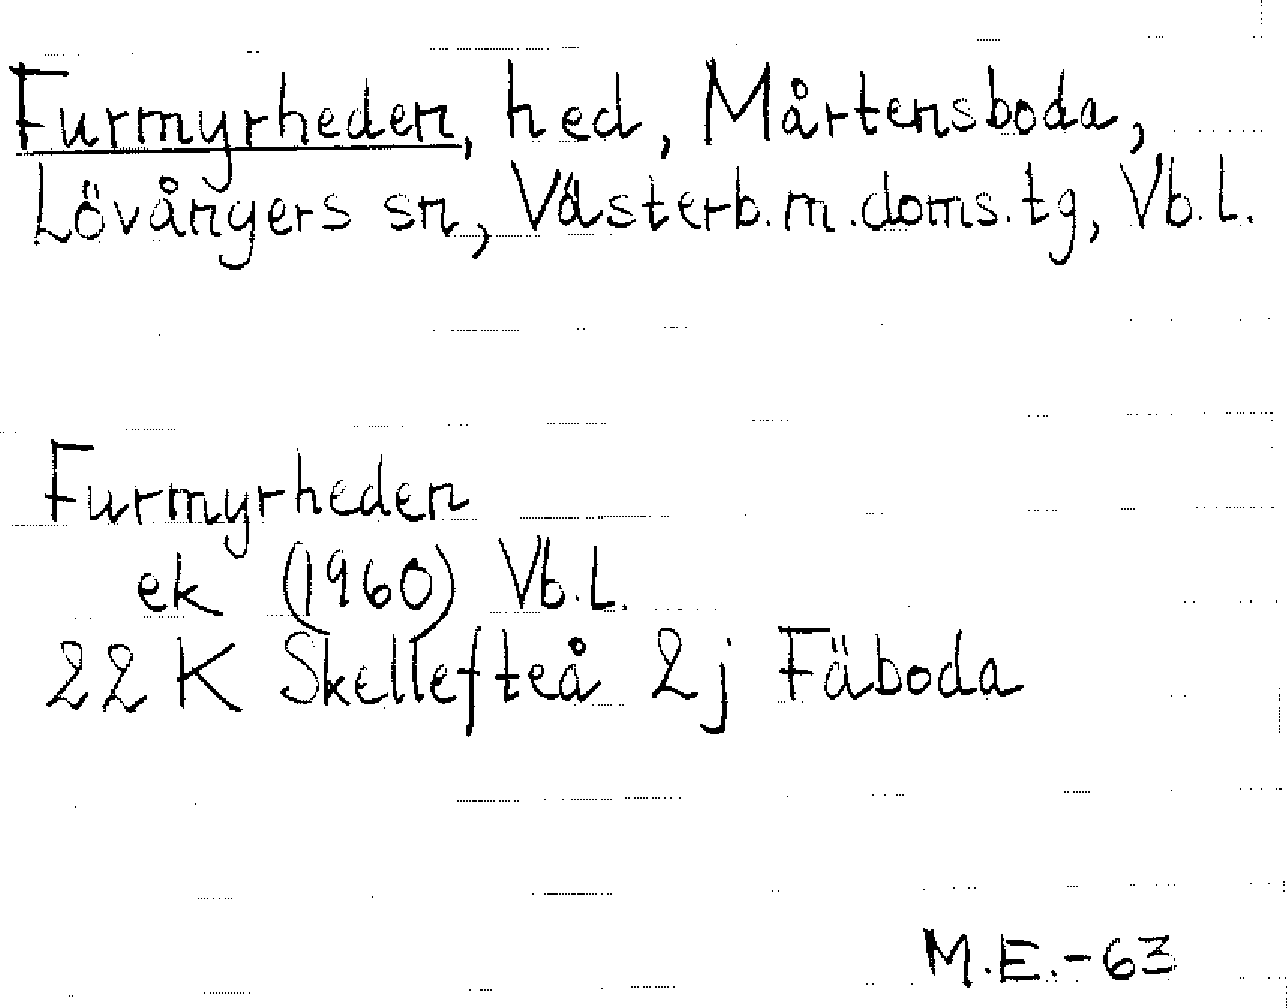 Furmyrheden, hed, Mårtensboda,
Lövångers sn, Västerb.m.doms.tg, Vb.l.
Furmyrheden
ek (1960) Vb.l.
22 K Skellefteå 2j Fäboda
M.E.-63